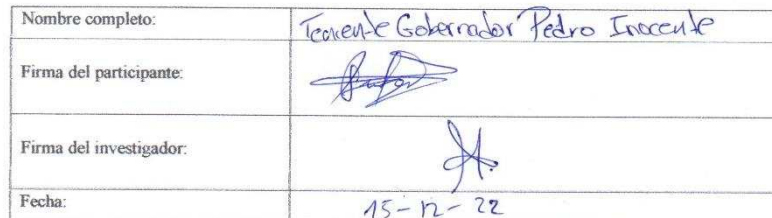 Nombre completo: Teniente Gobernador Pedro Inocente
Firma del participante:
Firma del investigador:
Fecha: 15-12-22